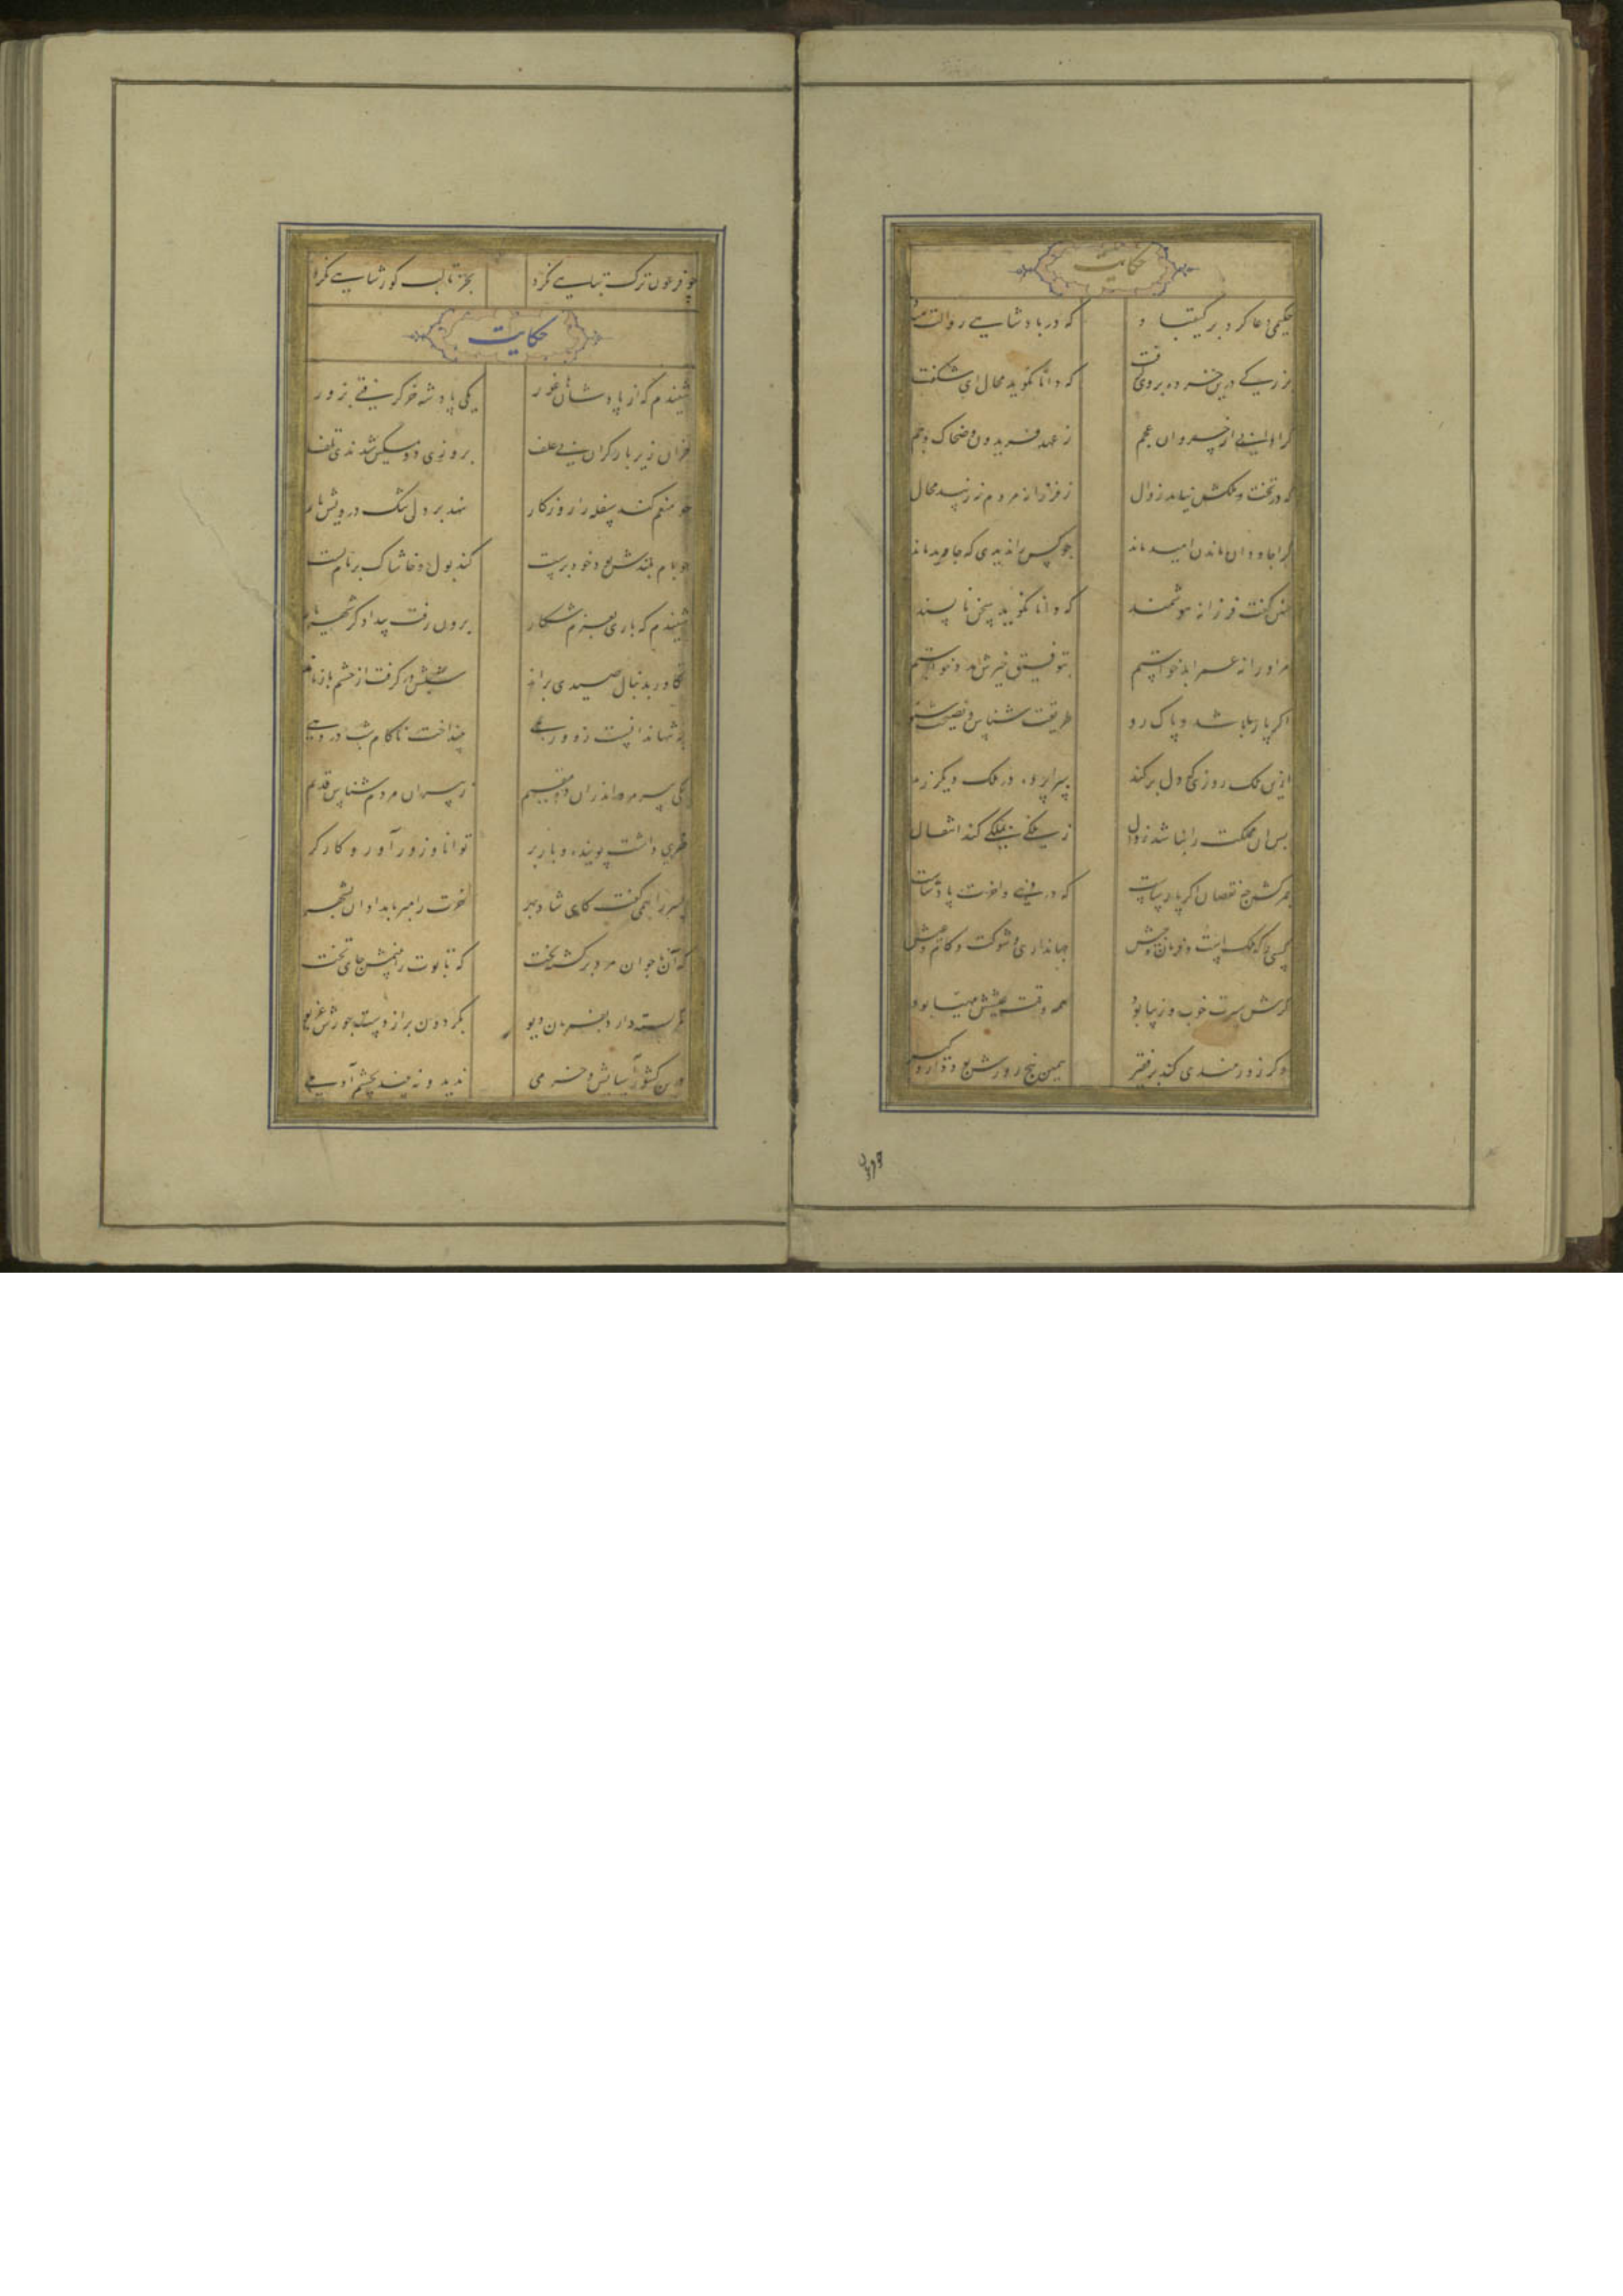 حکایت
حکیمی دعا کرد بر کیقباد که در پادشاهی زوالت مباد
بزرگی درین خرده بر وی گرفت که دانا نگوید محال ای شکفت
کرا دانی از خسروان عجم ز عهد فریدون و ضحاک و جم
که در تخت و ملکش نیاید زوال ز فرزانه مردم نزیبد محال
کرا جاودان ماندن امید ماند چو کس را ندیدی که جاوید ماند
چنین گفت فرزانه هوشمند که دانا نگوید سخن ناپسند
مر او را نه عمر ابد خواستم بتوفیق خیرش مدد خواستم
اگر پارسا باشد و پاک رو طریقت شناس و نصیحت شنو
ازین ملک روزی که دل برکند سراپرده در ملک دیگر زند
پس این مملکت را نباشد زوال ز ملکی بملکی کند انتقال
ز مرگش چه نقصان اگر پارساست که در دنیی و آخرت پادشاست
کسی را که ملکست و فرمان و جیش جهانداری و شوکت و کام و عیش
گرش سیرت خوب و زیبا بود همه وقت عیشش مهیا بود
وگر زورمندی کند بر فقیر همین پنج روزش بود دار و گیر
چو فرعون ترک تباهی نکرد بجز تا لب گور شاهی نکرد
حکایت
شنیدم که از پادشاهان غور یکی پادشه خر گرفتی بزور
خران زیر بار گران بی علف بروزی دو مسکین شدندی تلف
چو منعم کند سفله را روزگار نهد بر دل تنگ درویش بار
چو بام بلندش بود خودپرست کند بول و خاشاک بر بام پست
شنیدم که باری بعزم شکار برون رفت بیدادگر شهریار
تکاور بدنبال صیدی براند شبش در گرفت از حشم باز ماند
به تنها ندانست ز و رهی بینداخت ناکام شب در دهی
یکی پیرمرد اندران ده مقیم ز پیران مردم شناس قدیم
خری داشت پوینده و باربر توانا و زورآور و کارگر
پسر را همی گفت کای شادبهر خرت را مبر بامدادان بشهر
که آن ناجوانمرد برگشته بخت که تابوت بینمش جای تخت
کمر بسته دارد بفرمان دیو بگردون بر از دست جورش غریو
درین کشور آسایش و خرمی ندید و نه بیند بچشم آدمی